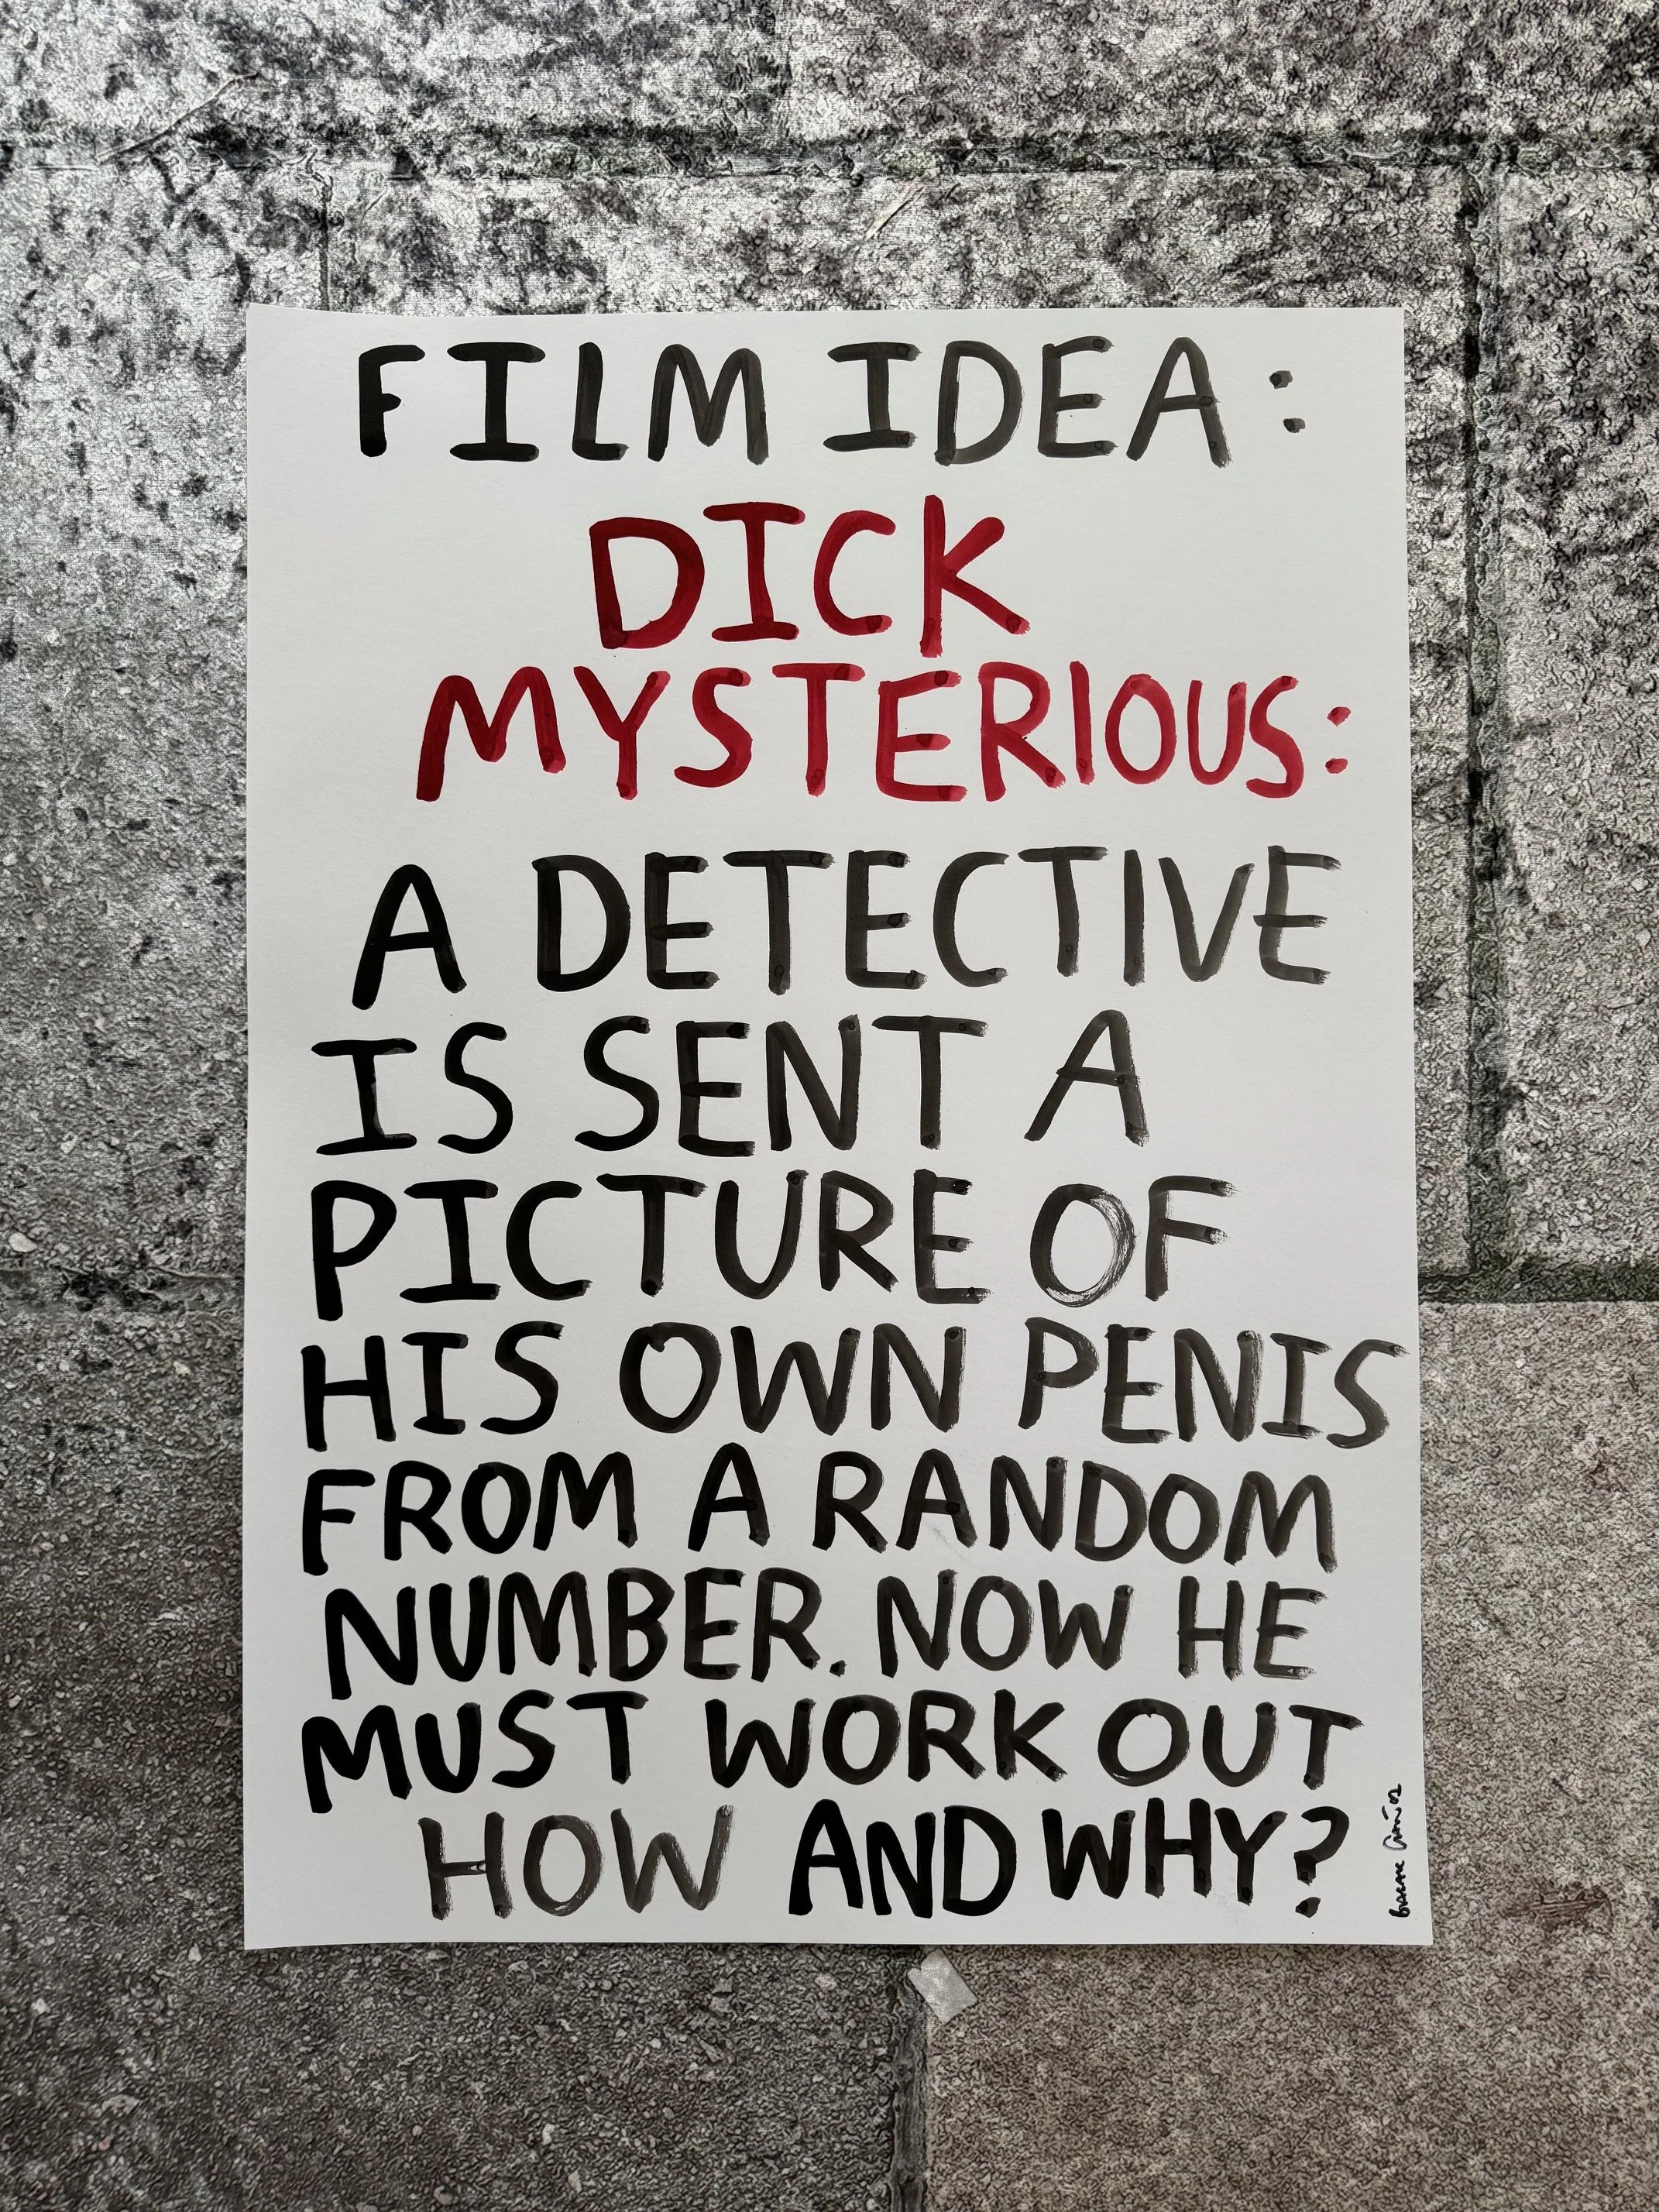 FILM IDEA:
DICK
MYSTERIOUS:
A DETECTIVE
IS SENT A
PICTURE OF
HIS OWN PENIS
FROM A RANDOM
NUMBER. NOW HE
MUST WORK OUT
HOW AND WHY?